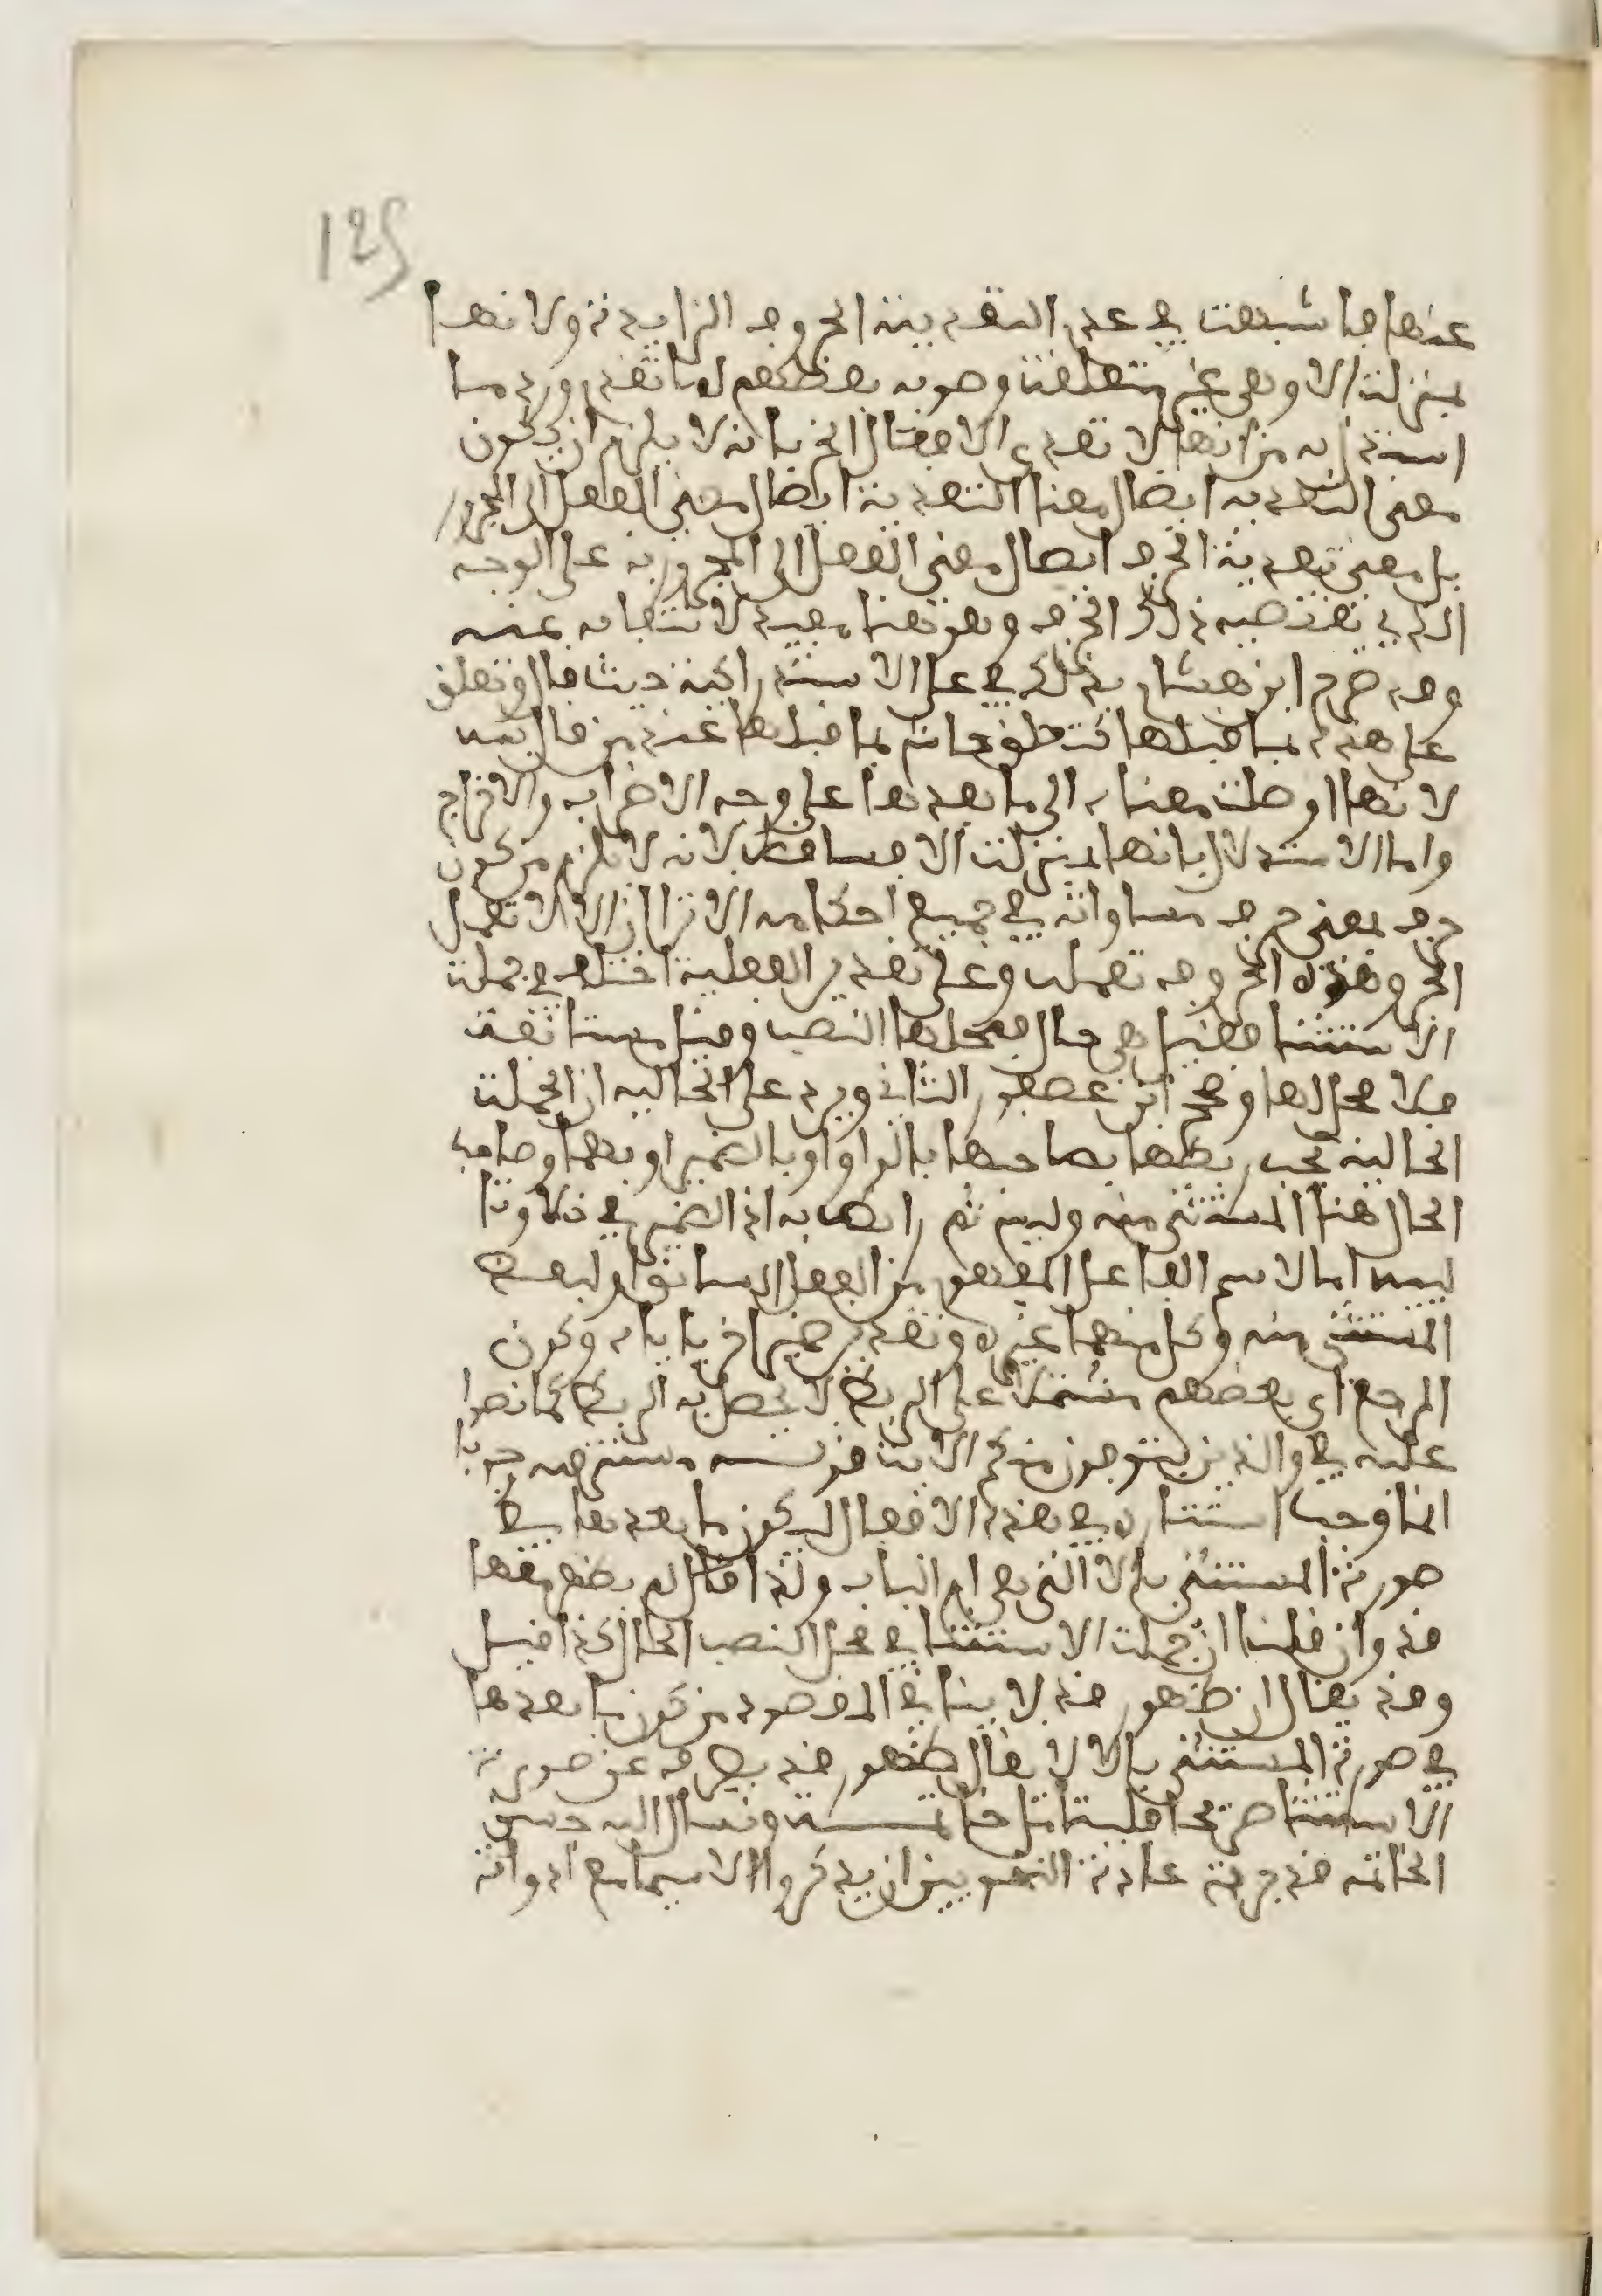 125
عنها فاشبهت في عدم التعدية الحروف الزايدة ولانها
بمنزلة الا وهي غير متعلقة وصوبه بعضهم لما تقدم ورد ما
استدل به من انها لا تعدى الافعال الخ بانه لا يلزم ان يكون
معنى التعدية ايصال معنا التعدية ايصال معنى الفعل الى المجرور
بل معنى تعدية الحرف ايصال معنى الفعل الى المجرور به على الوجه
الذي يقتضيه ذلك الحرف وهو هنا مفيد لانتفايه عنه
وقد صرح ابن هشام بذلك في على الاستدراكية حيث قال وتعلق
على هذه بما قبلها كتعلق حاشا بما قبلها عند من قال به
لانها اوصلت معناه الى ما بعدها على وجه الاضراب والاخراج
واما الاستدلال بانها بمنزلة الا فساقط لانه لا يلزم من كون
حرف بمعنى حرف مساواته في جميع احكامه الا ترا ان الا لا تعمل
الجر وهذه الحروف تعمله وعلى تقدير الفعلية اختلف في جملة
الاستثنا فقيل هي حال فمحلها النصب وقيل مستانفة
فلا محل لها وصحح ابن عصفور الثاني ويرد على الحالية ان الجملة
الحالية يجب ربطها بصاحبها بالواو او بالضمير او بهما وصاحب
الحال هنا المستثنى منه وليس ثم رابط به اذ الضمير في خلا وتا
ليس اما لاسم الفاعل المفهوم من الفعل السابق او لبعض
المستثنى منه وكل منهما غيره وتقدير ضمير اخر ياباه وكون
المرجع اي بعضهم مشتملا على الربط لا يحصل به الربط كما نصوا
عليه في والذين يتوفون منكم الاية
انما وجب استتاره في هذه الافعال ليكون ما بعدها في
صورة المستثنى بالا التي هي ام الباب ولذا قال لم يظهر معها
قد وان قلنا ان جملة الاستثنا في محل النصب الحال كذا قيل
وقد يقال ان ظهور قد لا ينافي المقصود من كون ما بعدها
في صورة المستثنى بالا لا يقال ظهور قد يصرفه عن صورة
الاستثنا صريحا خاتمة ونسال الله حسن
الخاتمة قد جرت عادة النحويين ان يذكروا لا سيما مع ادواته